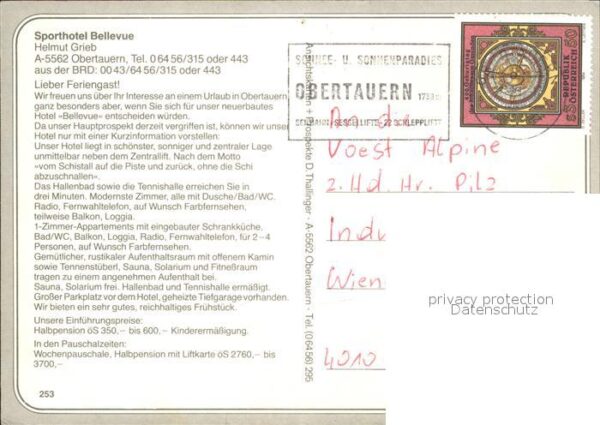 Sporthotel Bellevue
Helmut Grieb
A-5562 Obertauern, Tel. 0 64 56/315 oder 443
aus der BRD: 00 43/64 56/315 oder 443
Lieber Feriengast!
Wir freuen uns über Ihr Interesse an einem Urlaub in Obertauern,
ganz besonders aber, wenn Sie sich für unser neuerbautes
Hotel »Bellevue« entscheiden würden.
Da unser Hauptprospekt derzeit vergriffen ist, können wir unser
Hotel nur mit einer Kurzinformation vorstellen:
Unser Hotel liegt in schönster, sonniger und zentraler Lage
unmittelbar neben dem Zentrallift. Nach dem Motto
»vom Schistall auf die Piste und zurück, ohne die Schi
abzuschnallen«.
Das Hallenbad sowie die Tennishalle erreichen Sie in
drei Minuten. Modernste Zimmer, alle mit Dusche/Bad/WC,
Radio, Fernwahltelefon, auf Wunsch Farbfernsehen,
teilweise Balkon, Loggia.
1-Zimmer-Appartements mit eingebauter Schrankküche,
Bad/WC, Balkon, Loggia, Radio, Fernwahltelefon, für 2–4
Personen, auf Wunsch Farbfernsehen.
Gemütlicher, rustikaler Aufenthaltsraum mit offenem Kamin
sowie Tennenstüberl, Sauna, Solarium und Fitneßraum
tragen zu einem angenehmen Aufenthalt bei.
Sauna, Solarium frei. Hallenbad und Tennishalle ermäßigt.
Großer Parkplatz vor dem Hotel, geheizte Tiefgarage vorhanden.
Wir bieten ein sehr gutes, reichhaltiges Frühstück.
Unsere Einführungspreise:
Halbpension öS 350,– bis 600,– Kinderermäßigung.
In den Pauschalzeiten:
Wochenpauschale, Halbpension mit Liftkarte öS 2760,– bis
3700,–
253
Ansichtskarten + Prospekte D. Thallinger · A-5562 Obertauern · Tel. (0 64 56) 295
SCHNEE- U. SONNENPARADIES
OBERTAUERN
22 SCHLEPPLIFTE
REPUBLIK
ÖSTERREICH
Voest Alpine
z. Hd. Hr. Pilz
Ind
Wien
4010
privacy protection
Datenschutz